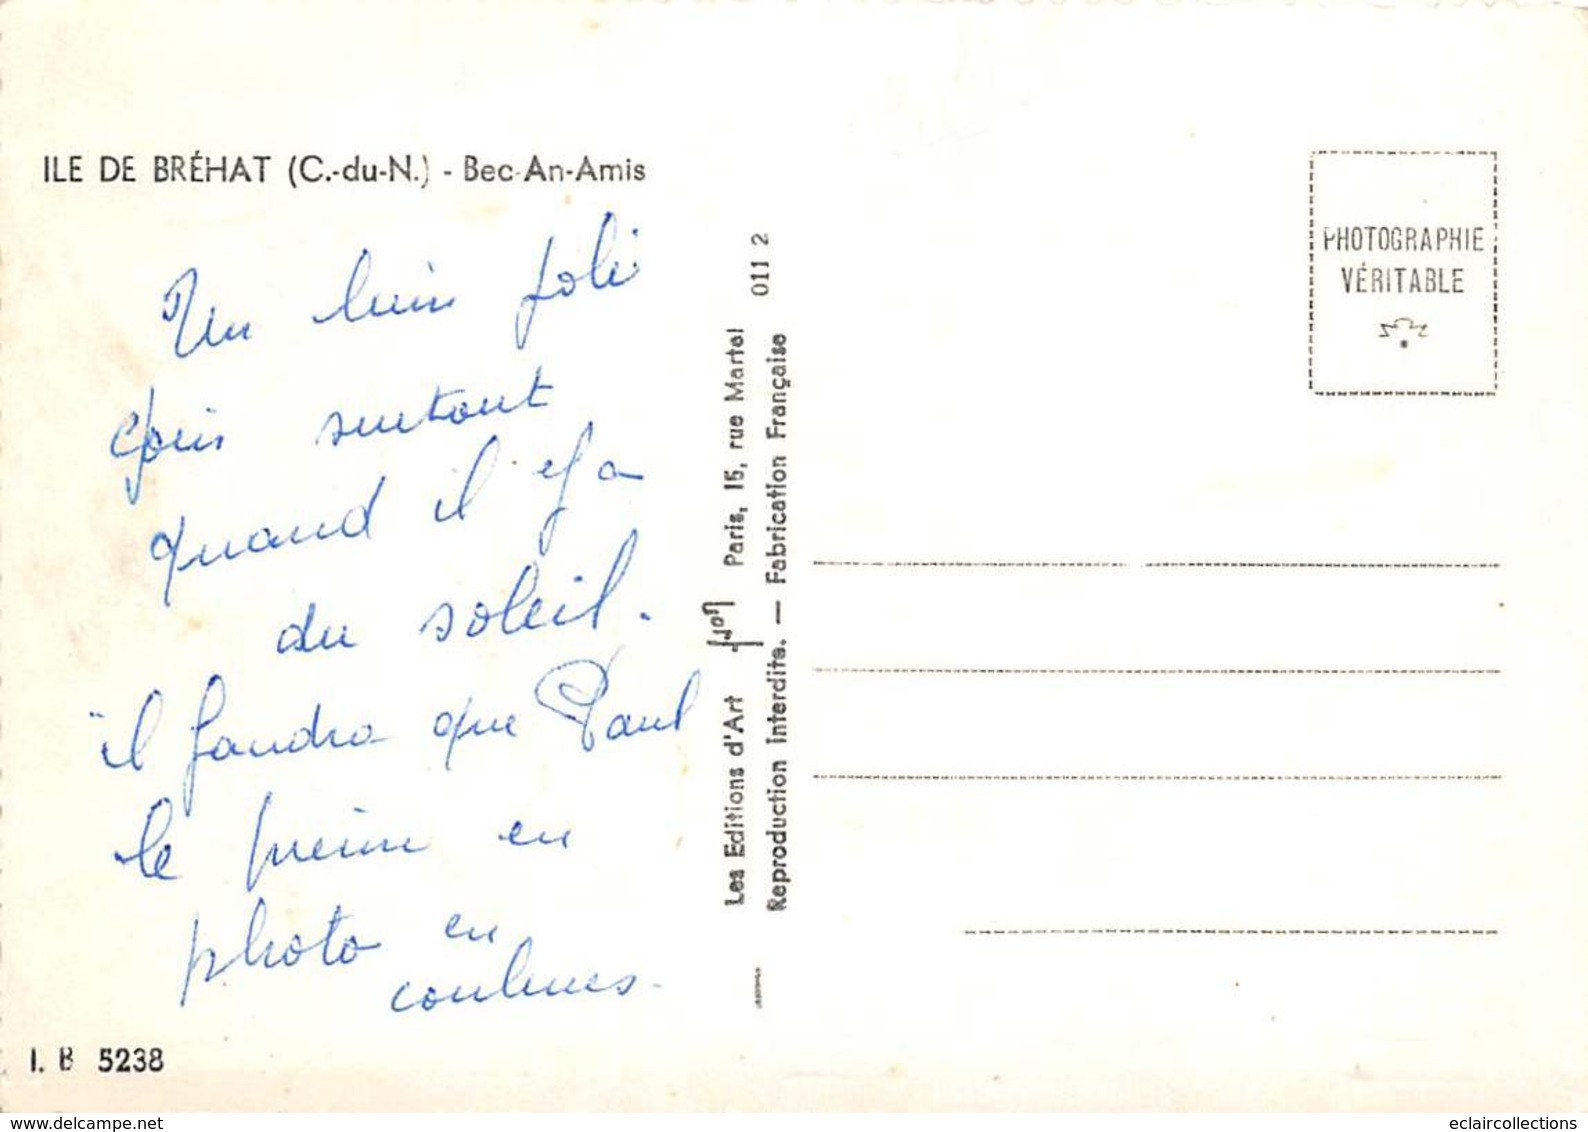 ILE DE BRÉHAT (C.-du-N.) - Bec-An-Amis
Un bien joli
coin surtout
quand il y a
du soleil.
il faudra que Paul
le prenne en
photo en
couleurs.
I. B 5238
Les Editions d'Art Yvon Paris, 15, rue Martel 011 2
Reproduction interdite. — Fabrication Française
PHOTOGRAPHIE
VÉRITABLE
eclaircollections